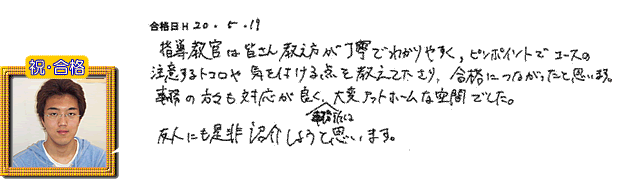 合格日 H 20.5.19
指導教官は皆さん教え方が丁寧でわかりやすく,ピンポイントでコースの
注意するトコロや気を付ける点を教えて下さり,合格につながったと思います。
事務の方々も対応が良く,大変アットホームな空間でした。
事務所には
友人にも是非紹介しようと思います。
祝・合格